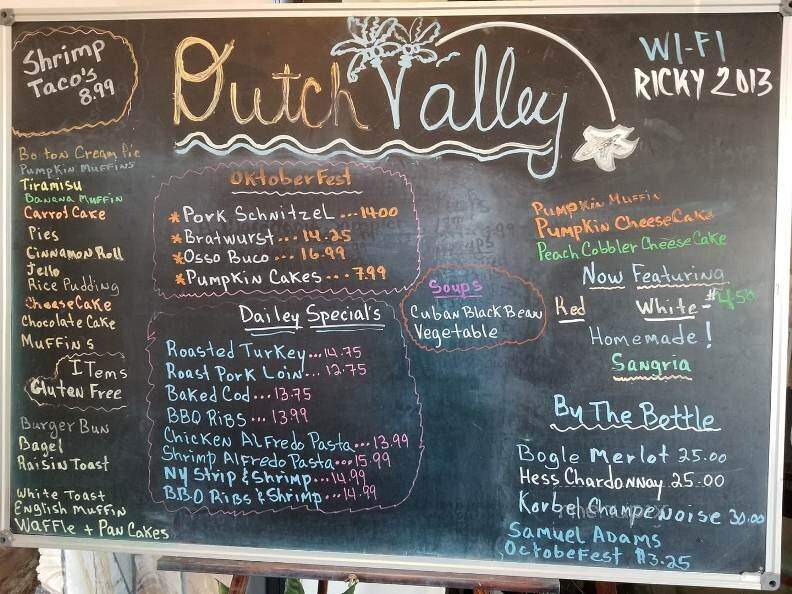 Shrimp
Taco's
8.99
Dutch Valley
WI-FI
RICKY 2013
Boston Cream Pie
Pumpkin Muffins
Tiramisu
Banana Muffin
Carrot Cake
Pies
Cinnamon Roll
Jello
Rice Pudding
CheeseCake
Chocolate Cake
Muffins
ITems
Gluten Free
Burger Bun
Bagel
Raisin Toast
White Toast
English Muffin
Waffle + Pan Cakes
OktoberFest
*Pork Schnitzel ... 14.00
*Bratwurst ... 14.25
*Osso Buco ... 16.99
*Pumpkin Cakes ... 7.99
Dailey Special's
Roasted Turkey ... 14.75
Roast Pork Loin ... 12.75
Baked Cod ... 13.75
BBQ Ribs ... 13.99
Chicken Alfredo Pasta ... 13.99
Shrimp Alfredo Pasta ... 15.99
NY Strip & Shrimp ... 14.99
BBQ Ribs & Shrimp ... 14.99
Soups
Cuban Black Bean
Vegetable
Pumpkin Muffin
Pumpkin CheeseCake
Peach Cobbler CheeseCake
Now Featuring
Red White - $4.50
Homemade!
Sangria
By The Bottle
Bogle Merlot 25.00
Hess Chardonnay 25.00
Korbel Champenoise 30.00
Samuel Adams
OctobeFest $3.25